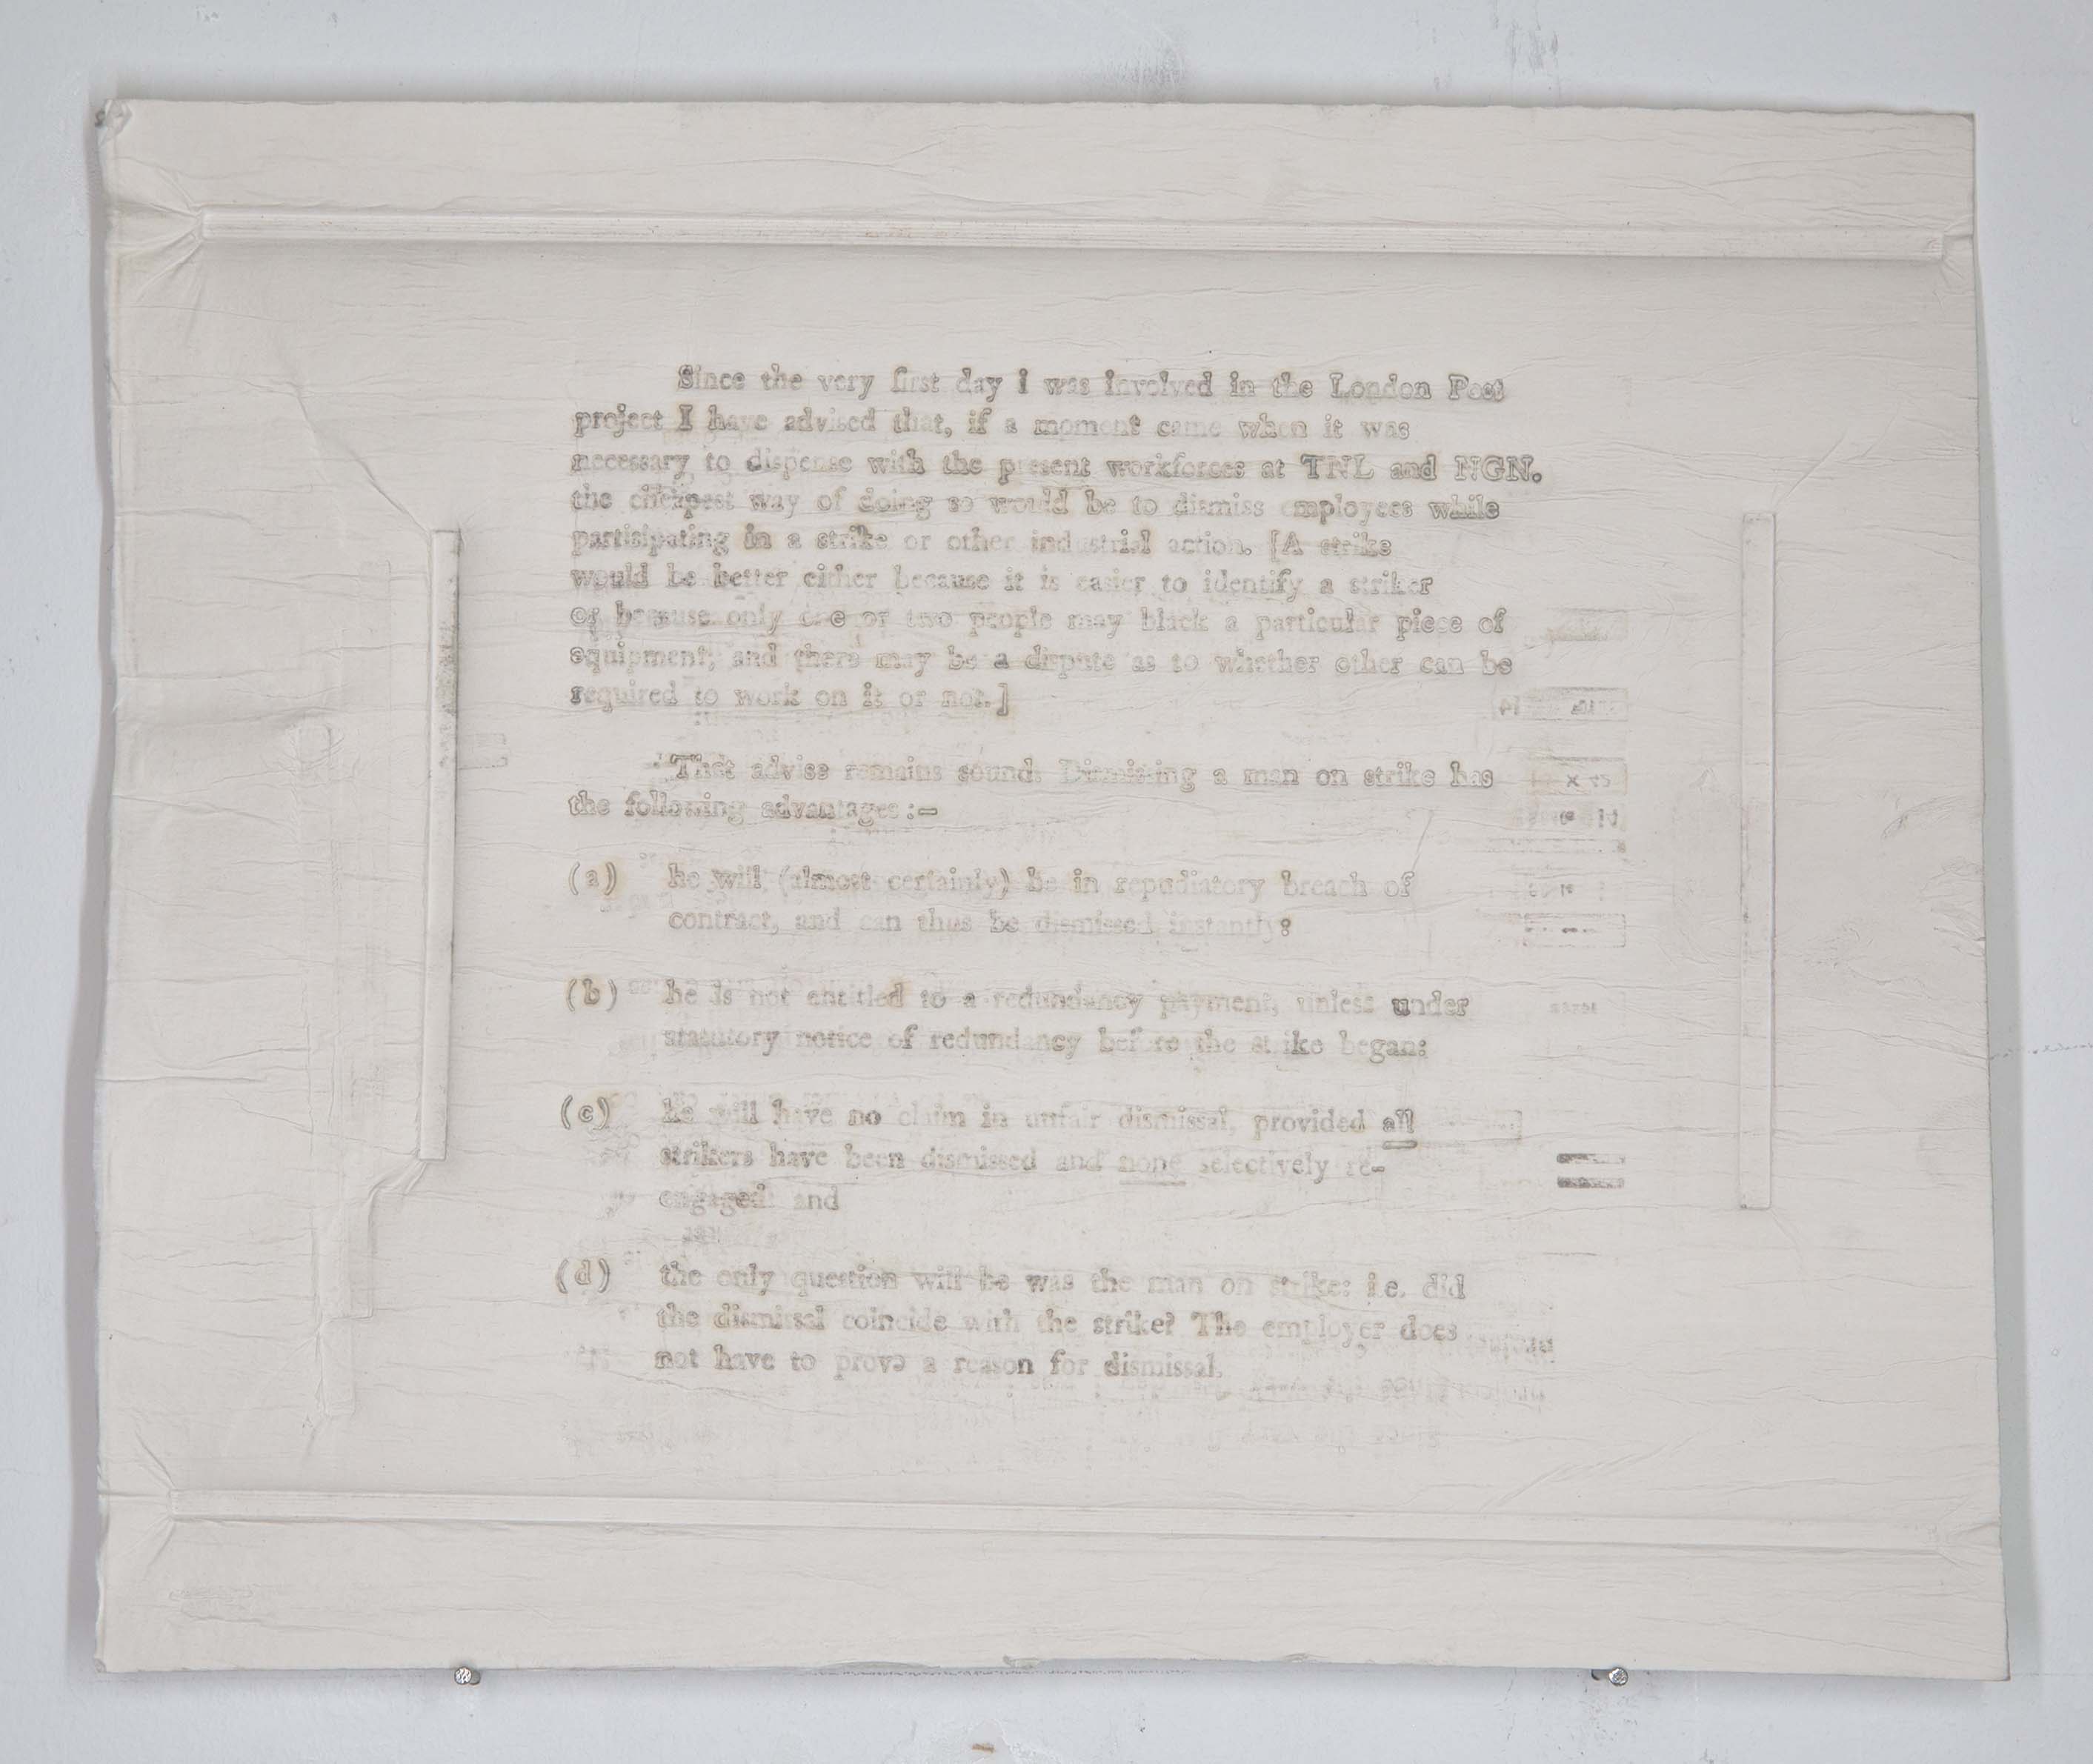 Since the very first day i was involved in the London Post
project I have advised that, if a moment came when it was
necessary to dispense with the present workforces at TNL and NGN.
the cheapest way of doing so would be to dismiss employees while
partisipating in a strike or other industrial action. [A strike
would be better either because it is easier to identify a striker
or because only one or two people may black a particular piece of
equipment, and there may be a dispute as to whether other can be
required to work on it or not.]
That advise remains sound. Dismissing a man on strike has
the following advantages:-
(a) he will (almost certainly) be in repudiatory breach of
contract, and can thus be dismissed instantly:
(b) he is not entitled to a redundancy payment, unless under
statutory notice of redundancy before the strike began:
(c) he will have no claim in unfair dismissal, provided all
strikers have been dismissed and none selectively re-
engaged: and
(d) the only question will be was the man on strike: i.e. did
the dismissal coincide with the strike? The employer does
not have to prove a reason for dismissal.